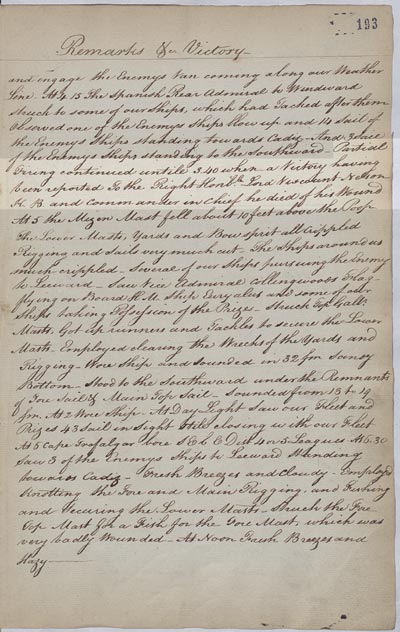 193
Remarks &c Victory
and engage the Enemys Van coming along our Weather
Line. At 4.15 The Spanish Rear Admiral to Windward
Struck to some of our Ships, which had Tacked after them
Observed one of the Enemys Ships blow up and 14 Sail of
the Enemys Ships standing towards Cadiz. And 3 Sail
of the Enemys Ships standing to the Southward. Partial
Firing continued untile 4.40 when a Victory having
been reported To the Right Honble Lord Viscount Nelson
K.B. and Commander in Chief he died of his Wound
At 5 the Mizen Mast fell about 10 feet above the Poop
The Lower Masts, Yards and Bowsprit all Crippled
Rigging and Sails very much cut. The Ships around us
much crippled. Several of our Ships pursuing the Enemy
to Leeward. Saw Vice Admiral Collingwoods Flag
flying on Board H.M. Ship Euryalus and some of our
Ships taking Possession of the Prizes. Struck Top Gallt
Masts Got up runners and Tackles to secure the Lower
Masts. Employed clearing the Wrecks of the Yards and
Rigging. Wore Ship and Sounded in 32 fm Sandy
Bottom. Stood to the Southward under the Remnants
of Fore Sail & Main Top Sail. Sounded from 13 to 19
fm. At 2 Wore Ship. At Day Light Saw our Fleet and
Prizes 43 Sail in Sight Still closing with our Fleet
At 5 Cape Trafalgar bore S E b E Dist 4 or 5 Leagues At 6.30
Saw 3 of the Enemys Ships to Leeward Standing
towards Cadiz. Fresh Breezes and Cloudy. Employed
Knotting the Fore and Main Rigging, and Fishing
and Securing the Lower Masts. Struck the Fore
Top Mast for a Fish for the Fore Mast, which was
very badly Wounded. At Noon Fresh Breezes and
Hazy